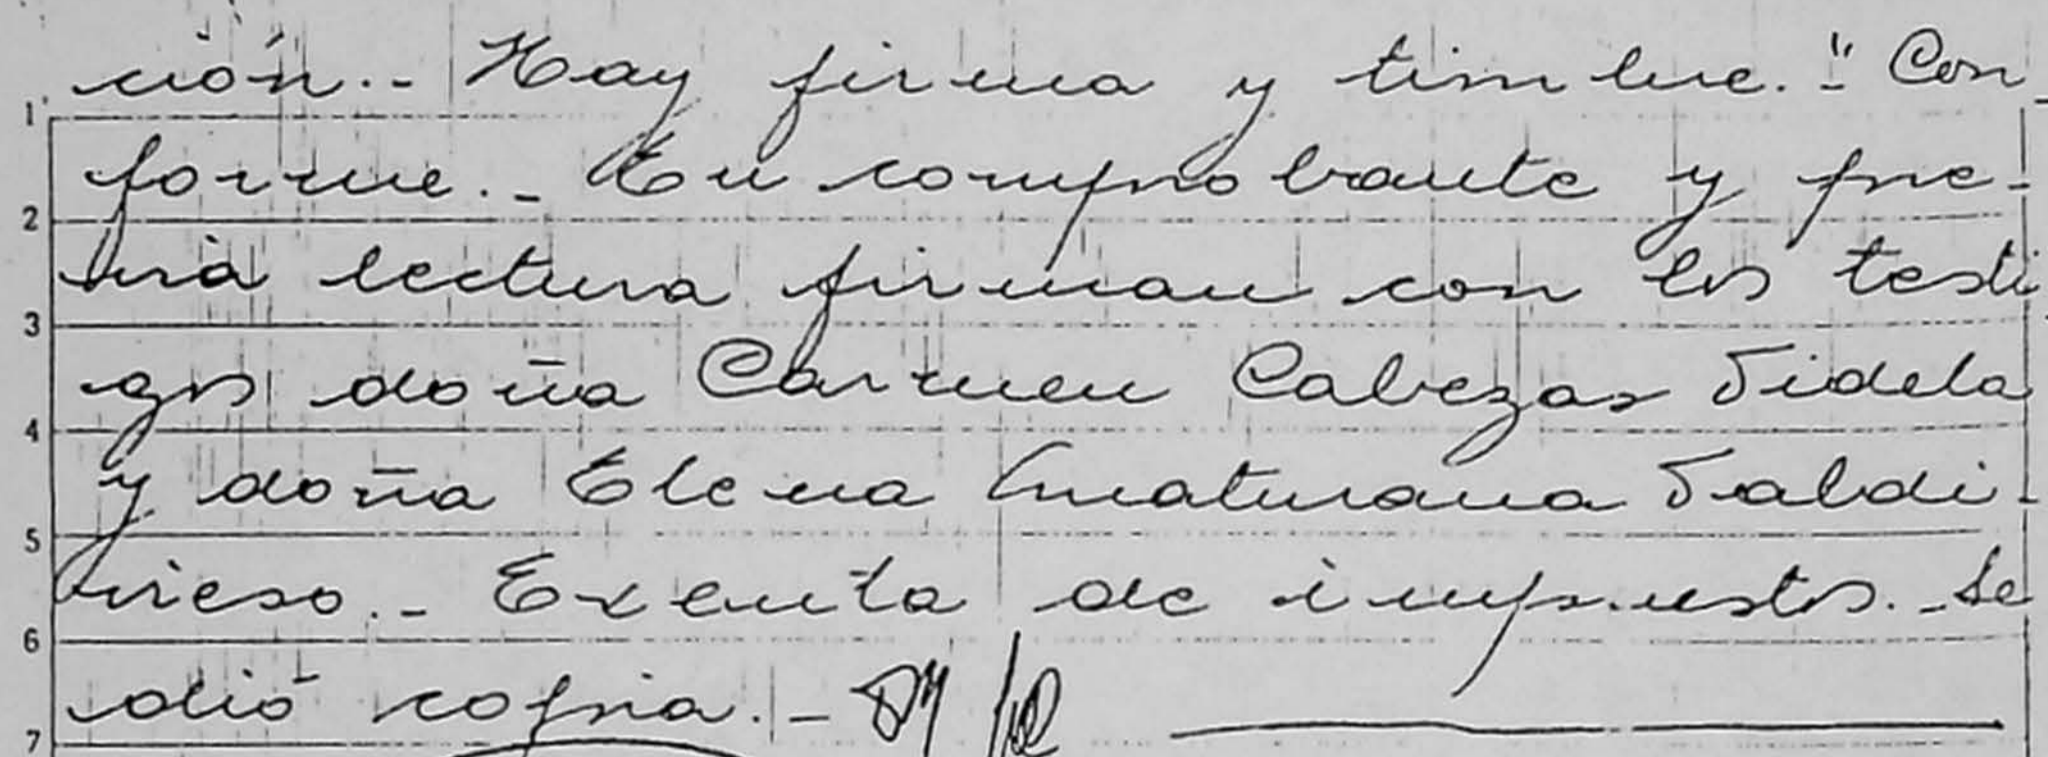 ción.- Hay firma y timbre." Con
1
forme.- En comprobante y pre-
2
via lectura firman con los testi
3
gos doña Carmen Cabezas Videla
4
y doña Elena Maturana Valdi-
5
vieso.- Exenta de impuestos.- Se
6
dió copia.-
7